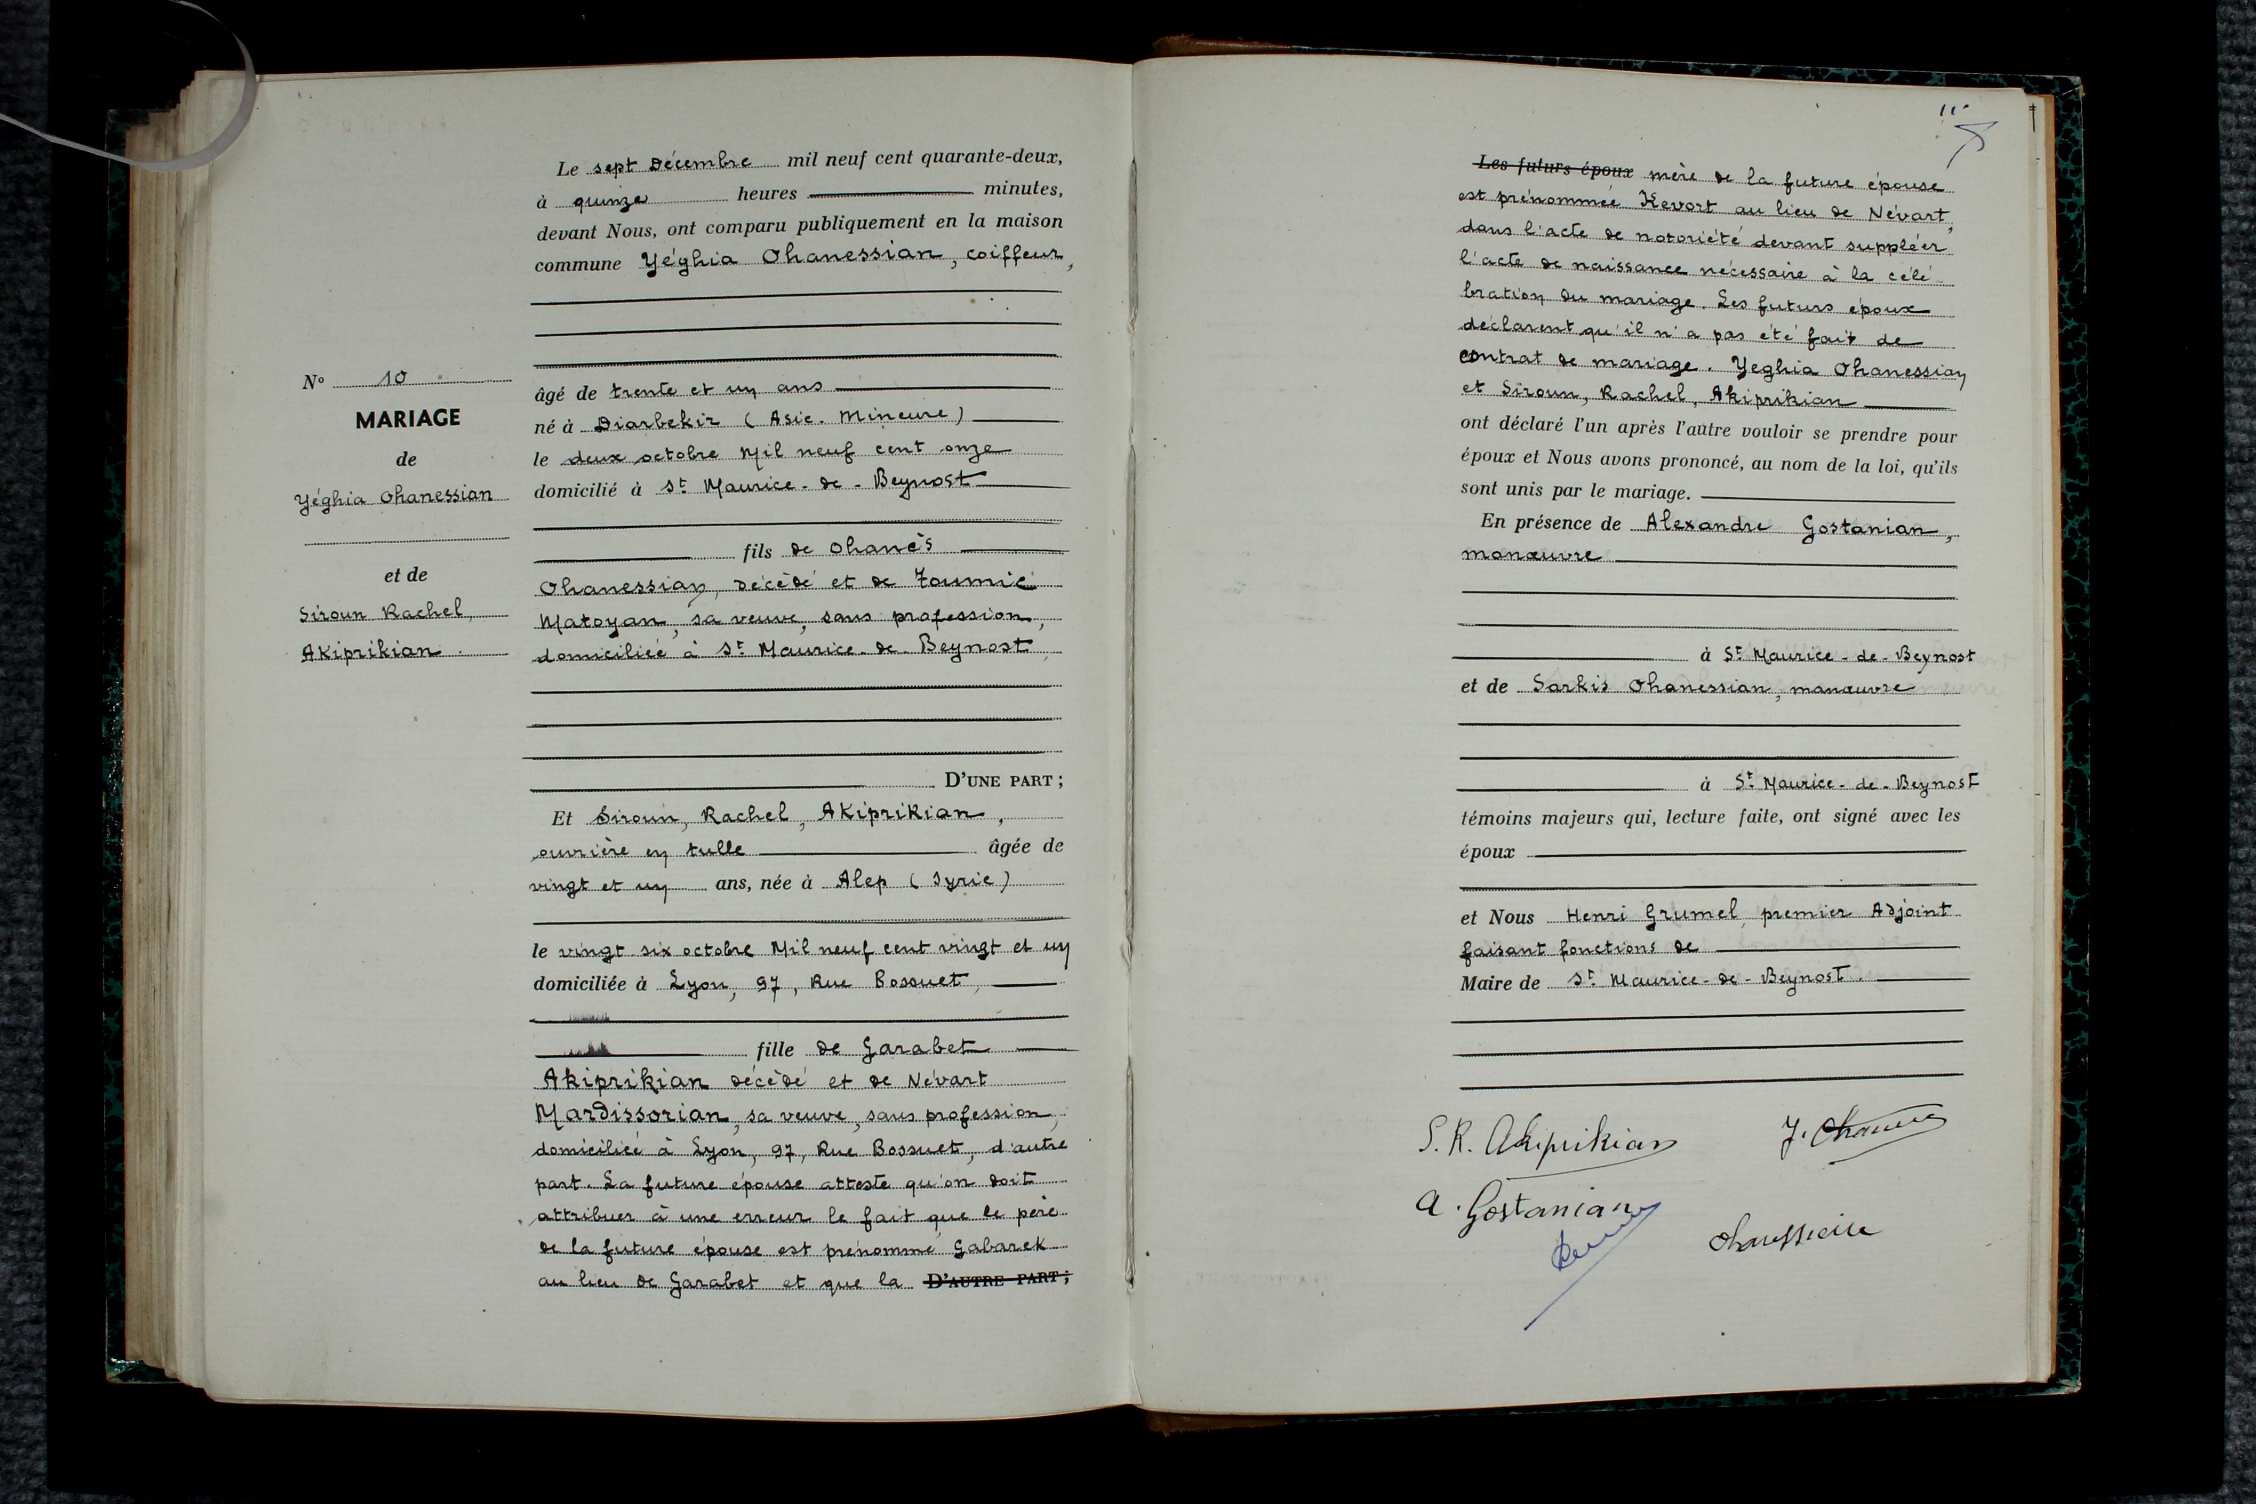 Le sept Décembre mil neuf cent quarante-deux,
à quinze heures minutes,
devant Nous, ont comparu publiquement en la maison
commune Yéghia Ohanessian, coiffeur,
âgé de trente et un ans
né à Diarbekir (Asie. Mineure)
le deux octobre Mil neuf cent onze
domicilié à St Maurice-de-Beynost
fils de Ohanès
Ohanessian, décédé et de Toumié
Matoyan, sa veuve, sans profession,
domiciliée à St Maurice-de-Beynost
D'UNE PART;
Et Siroun, Rachel, Akiprikian,
ouvrière en tulle âgée de
vingt et un ans, née à Alep (Syrie)
le vingt six octobre Mil neuf cent vingt et un
domiciliée à Lyon, 97, Rue Bossuet,
fille de Garabet
Akiprikian décédé et de Névart
Mardissorian, sa veuve, sans profession,
domiciliée à Lyon, 97, Rue Bossuet, d'autre
part. La future épouse atteste qu'on doit
attribuer à une erreur le fait que le père
de la future épouse est prénommé Gabarek
au lieu de Garabet et que la D'AUTRE PART;
No 10
MARIAGE
de
Yéghia Ohanessian
et de
Siroun Rachel,
Akiprikian.
11
Les futurs époux mère de la future épouse
est prénommée Kevort au lieu de Névart,
dans l'acte de notoriété devant suppléer
l'acte de naissance nécessaire à la célé
bration du mariage. Les futurs époux
déclarent qu'il n'a pas été fait de
contrat de mariage. Yeghia Ohanessian
et Siroun, Rachel, Akiprikian
ont déclaré l'un après l'autre vouloir se prendre pour
époux et Nous avons prononcé, au nom de la loi, qu'ils
sont unis par le mariage.
En présence de Alexandre Gostanian,
manœuvre
à St Maurice-de-Beynost
et de Sarkis Ohanessian, manœuvre
à St Maurice-de-Beynost
témoins majeurs qui, lecture faite, ont signé avec les
époux
et Nous Henri Grumel, premier Adjoint
faisant fonctions de
Maire de St Maurice-de-Beynost.
S. R. Akiprikian
A. Gostanian